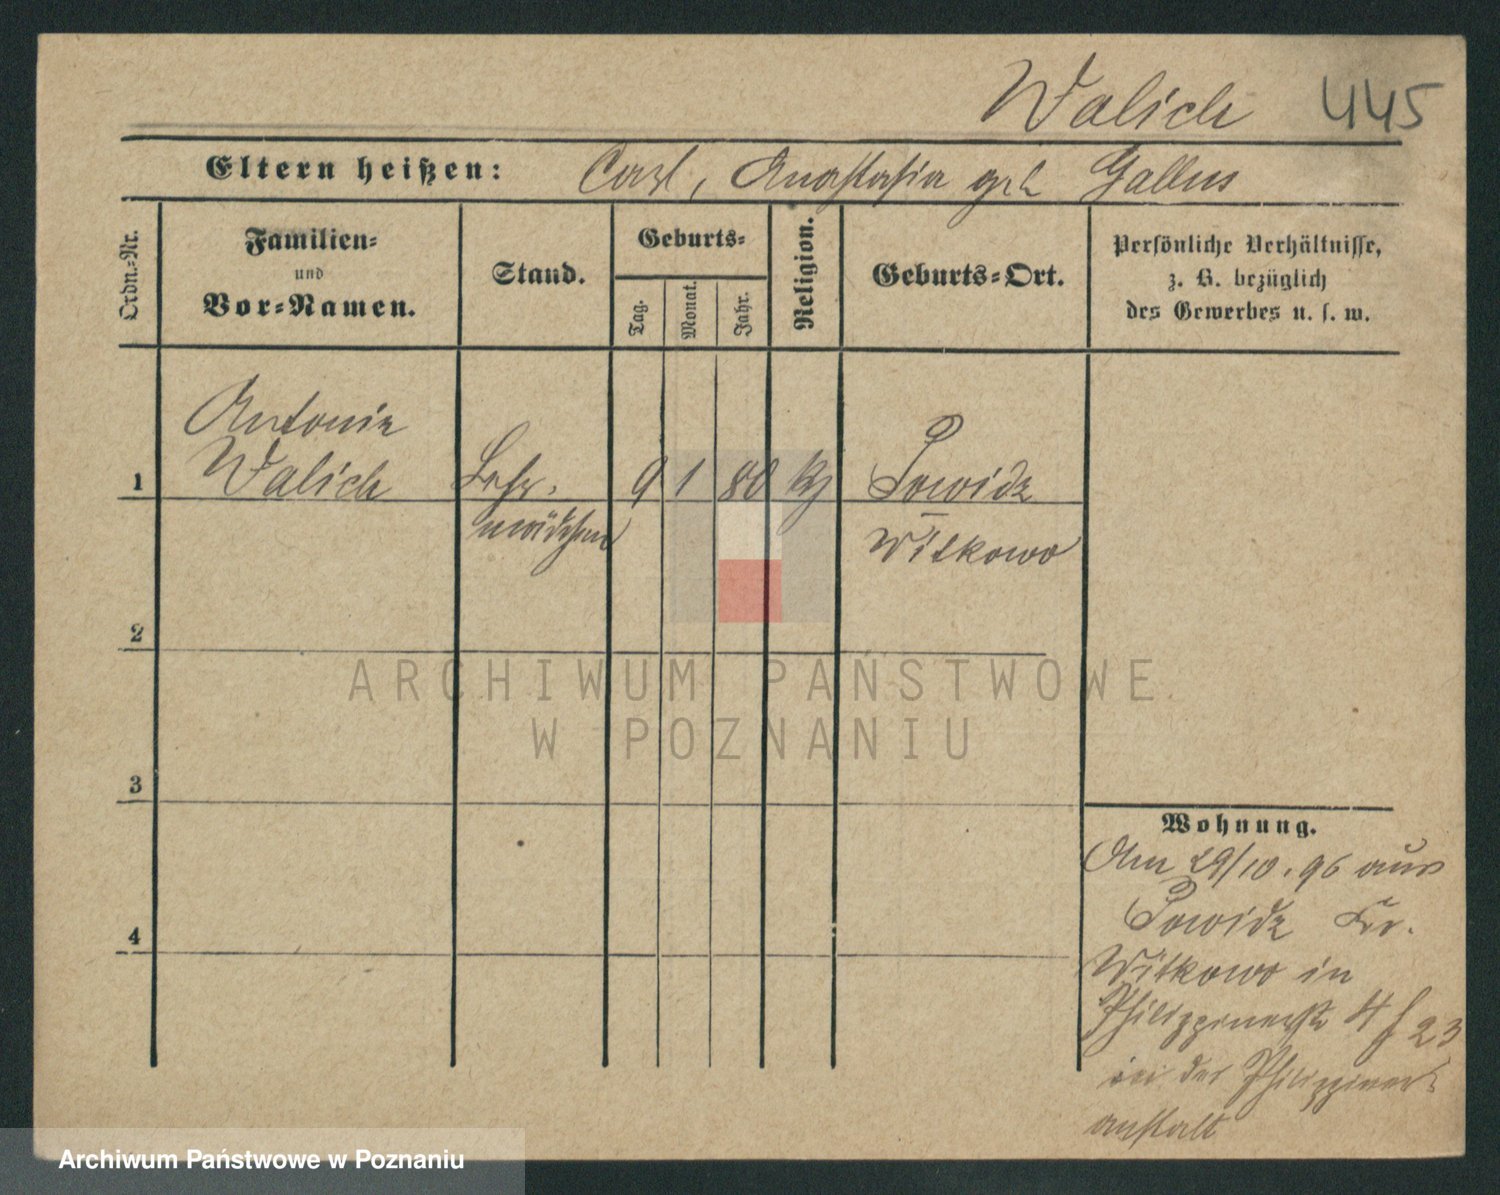 Walich 445
Eltern heißen: Carl, Anastasia geb. Gallus
Ordn.-Nr.
Familien-
und
Vor-Namen.
Stand.
Geburts-
Tag.
Monat.
Jahr.
Religion.
Geburts-Ort.
Persönliche Verhältnisse,
z. B. bezüglich
des Gewerbes u. s. w.
Antonie
1 Walich Lehr- 9 1 80 Powidz
mädchen Witkowo
2
3
4
Wohnung.
Am 29/10.96 aus
Powidz Kr.
Witkowo in
23
in der
anstalt
ARCHIWUM PAŃSTWOWE
W POZNANIU
Archiwum Państwowe w Poznaniu